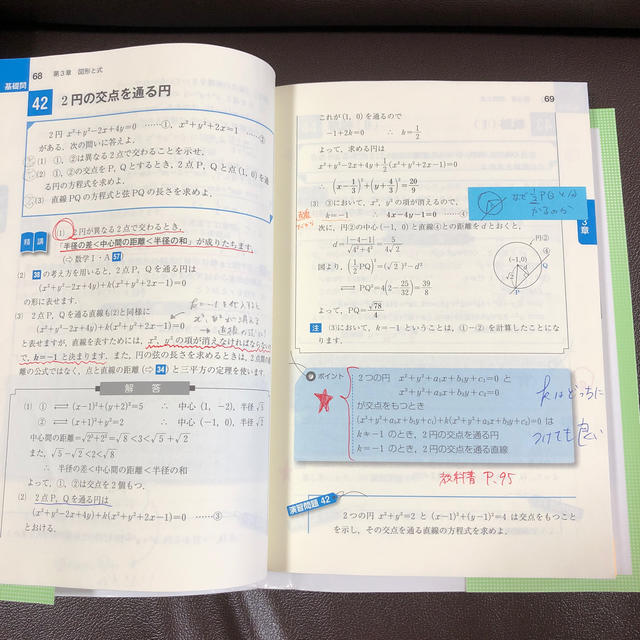 基礎問
68 第3章 図形と式
42 2円の交点を通る円
2円 x²+y²−2x+4y=0 ……①, x²+y²+2x=1 ……②
がある．次の問いに答えよ．
(1) ①，②は異なる2点で交わることを示せ．
(2) ①，②の交点を P，Q とするとき，2点 P，Q と点(1, 0)を通
る円の方程式を求めよ．
(3) 直線 PQ の方程式と弦 PQ の長さを求めよ．
精講
(1) 2円が異なる2点で交わるとき，
「半径の差＜中心間の距離＜半径の和」が成りたちます．
(⇨数学Ⅰ・A 57)
(2) 38 の考え方を用いると，2点P，Qを通る円は
(x²+y²−2x+4y)+k(x²+y²+2x−1)=0
の形に表せます．
(3) 2点P，Qを通る直線も(2)と同様に
(x²+y²−2x+4y)+k(x²+y²+2x−1)=0
と表せますが，直線を表すためには，x²，y² の項が消えなければならないの
で，k=−1 と決まります．また，円の弦の長さを求めるときは，2点間の距
離の公式ではなく，点と直線の距離(⇨ 34)と三平方の定理を使います．
解答
(1) ① ⟺ (x−1)²+(y+2)²=5 ∴ 中心 (1, −2)，半径 √5
② ⟺ (x+1)²+y²=2 ∴ 中心 (−1, 0)，半径 √2
中心間の距離=√2²+2²=√8<3<√5+√2
また，√5−√2<2<√8
∴ 半径の差＜中心間の距離＜半径の和
よって，①，②は交点を2個もつ．
(2) 2点P，Qを通る円は
(x²+y²−2x+4y)+k(x²+y²+2x−1)=0 ……③
とおける．
69
これが(1, 0)を通るので
−1+2k=0 ∴ k=1/2
よって，求める円は
x²+y²−2x+4y+1/2(x²+y²+2x−1)=0
∴ (x−1/3)²+(y+4/3)²=20/9
(3) ③において，x²，y² の項が消えるので，
k=−1 ∴ 4x−4y−1=0 ……④
次に，円②の中心(−1, 0)と直線④との距離をdとおくと，
d=|−4−1|/√4²+4²=5/4√2
図より，(1/2PQ)²=(√2)²−d²
⟺ PQ²=4(2−25/32)=39/8
よって，PQ=√78/4
円②
④
(−1, 0)
√2
d
Q
P
なぜ½PQとな
3章
注 (3)において，k=−1 ということは，①−② を計算したことにな
ります．
ポイント
2つの円 x²+y²+a₁x+b₁y+c₁=0 と
x²+y²+a₂x+b₂y+c₂=0
が交点をもつとき
(x²+y²+a₁x+b₁y+c₁)+k(x²+y²+a₂x+b₂y+c₂)=0 は
k≠−1 のとき，2円の交点を通る円
k=−1 のとき，2円の交点を通る直線
kはどっちに
つけても良い
教科書 P.95
演習問題 42
2つの円 x²+y²=2 と (x−1)²+(y−1)²=4 は交点をもつこと
を示し，その交点を通る直線の方程式を求めよ．